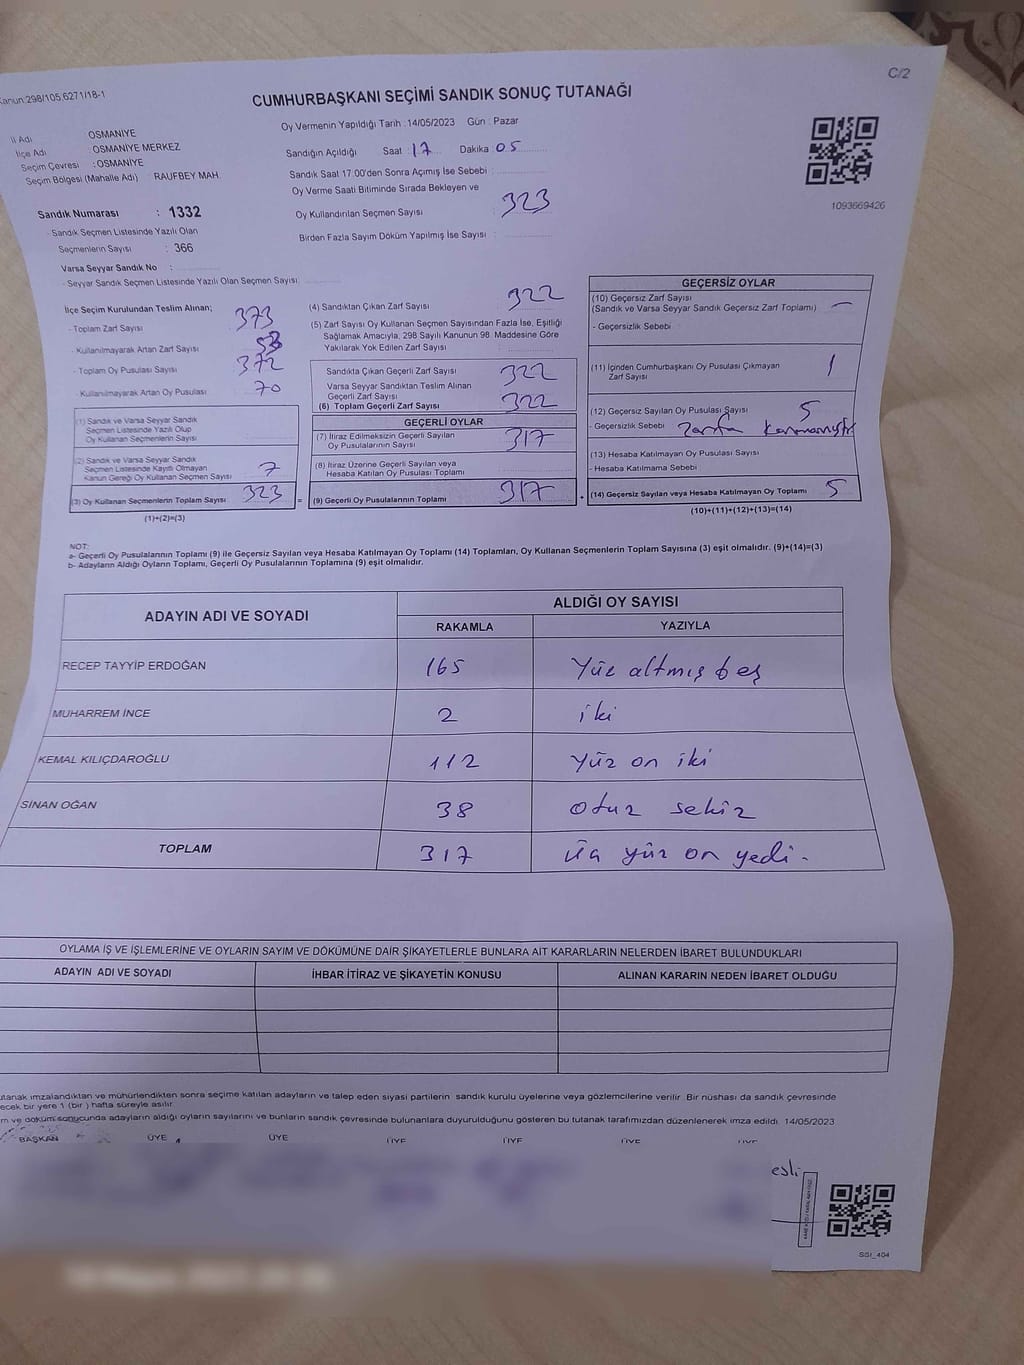 Kanun:298/105,6271/18-1
C/2
CUMHURBAŞKANI SEÇİMİ SANDIK SONUÇ TUTANAĞI
Oy Vermenin Yapıldığı Tarih :14/05/2023 Gün : Pazar
İl Adı OSMANİYE
İlçe Adı : OSMANİYE MERKEZ
Seçim Çevresi : OSMANİYE
Seçim Bölgesi (Mahalle Adı) : RAUFBEY MAH.
Sandık Numarası : 1332
- Sandık Seçmen Listesinde Yazılı Olan
Seçmenlerin Sayısı : 366
Varsa Seyyar Sandık No :
- Seyyar Sandık Seçmen Listesinde Yazılı Olan Seçmen Sayısı:
Sandığın Açıldığı Saat 17 Dakika 05
Sandık Saat 17.00'den Sonra Açımış İse Sebebi :
Oy Verme Saati Bitiminde Sırada Bekleyen ve
Oy Kullandırılan Seçmen Sayısı : 323
Birden Fazla Sayım Döküm Yapılmış İse Sayısı :
1093669426
İlçe Seçim Kurulundan Teslim Alınan;
- Toplam Zarf Sayısı 373
- Kullanılmayarak Artan Zarf Sayısı
- Toplam Oy Pusulası Sayısı 372
- Kullanılmayarak Artan Oy Pusulası 70
(1) Sandık ve Varsa Seyyar Sandık
Seçmen Listesinde Yazılı Olup
Oy Kullanan Seçmenlerin Sayısı
(2) Sandık ve Varsa Seyyar Sandık
Seçmen Listesinde Kayıtlı Olmayan
Kanun Gereği Oy Kullanan Seçmen Sayısı 7
(3) Oy Kullanan Seçmenlerin Toplam Sayısı 323 =
(1)+(2)=(3)
(4) Sandıktan Çıkan Zarf Sayısı 322
(5) Zarf Sayısı Oy Kullanan Seçmen Sayısından Fazla İse, Eşitliği
Sağlamak Amacıyla, 298 Sayılı Kanunun 98. Maddesine Göre
Yakılarak Yok Edilen Zarf Sayısı
Sandıkta Çıkan Geçerli Zarf Sayısı 322
Varsa Seyyar Sandıktan Teslim Alınan
Geçerli Zarf Sayısı
(6) Toplam Geçerli Zarf Sayısı 322
GEÇERLİ OYLAR
(7) İtiraz Edilmeksizin Geçerli Sayılan
Oy Pusulalarının Sayısı 317
(8) İtiraz Üzerine Geçerli Sayılan veya
Hesaba Katılan Oy Pusulası Toplamı
(9) Geçerli Oy Pusulalarının Toplamı 317 +
GEÇERSİZ OYLAR
(10) Geçersiz Zarf Sayısı
(Sandık ve Varsa Seyyar Sandık Geçersiz Zarf Toplamı) —
- Geçersizlik Sebebi
(11) İçinden Cumhurbaşkanı Oy Pusulası Çıkmayan
Zarf Sayısı 1
(12) Geçersiz Sayılan Oy Pusulası Sayısı 5
- Geçersizlik Sebebi
(13) Hesaba Katılmayan Oy Pusulası Sayısı
- Hesaba Katılmama Sebebi
(14) Geçersiz Sayılan veya Hesaba Katılmayan Oy Toplamı 5
(10)+(11)+(12)+(13)=(14)
NOT:
a- Geçerli Oy Pusulalarının Toplamı (9) ile Geçersiz Sayılan veya Hesaba Katılmayan Oy Toplamı (14) Toplamları, Oy Kullanan Seçmenlerin Toplam Sayısına (3) eşit olmalıdır. (9)+(14)=(3)
b- Adayların Aldığı Oyların Toplamı, Geçerli Oy Pusulalarının Toplamına (9) eşit olmalıdır.
ADAYIN ADI VE SOYADI ALDIĞI OY SAYISI
RAKAMLA YAZIYLA
RECEP TAYYİP ERDOĞAN 165 Yüz altmış beş
MUHARREM İNCE 2 iki
KEMAL KILIÇDAROĞLU 112 Yüz on iki
SİNAN OĞAN 38 otuz sekiz
TOPLAM 317 Üç yüz on yedi.
OYLAMA İŞ VE İŞLEMLERİNE VE OYLARIN SAYIM VE DÖKÜMÜNE DAİR ŞİKAYETLERLE BUNLARA AİT KARARLARIN NELERDEN İBARET BULUNDUKLARI
ADAYIN ADI VE SOYADI İHBAR İTİRAZ VE ŞİKAYETİN KONUSU ALINAN KARARIN NEDEN İBARET OLDUĞU
utanak imzalandıktan ve mühürlendikten sonra seçime katılan adayların ve talep eden siyasi partilerin sandık kurulu üyelerine veya gözlemcilerine verilir. Bir nüshası da sandık çevresinde
ecek bir yere 1 (bir ) hafta süreyle asılır.
m ve döküm sonucunda adayların aldığı oyların sayılarını ve bunların sandık çevresinde bulunanlara duyurulduğunu gösteren bu tutanak tarafımızdan düzenlenerek imza edildi. 14/05/2023
BAŞKAN ÜYE ÜYE ÜYE ÜYE ÜYE ÜYE
SSI_404